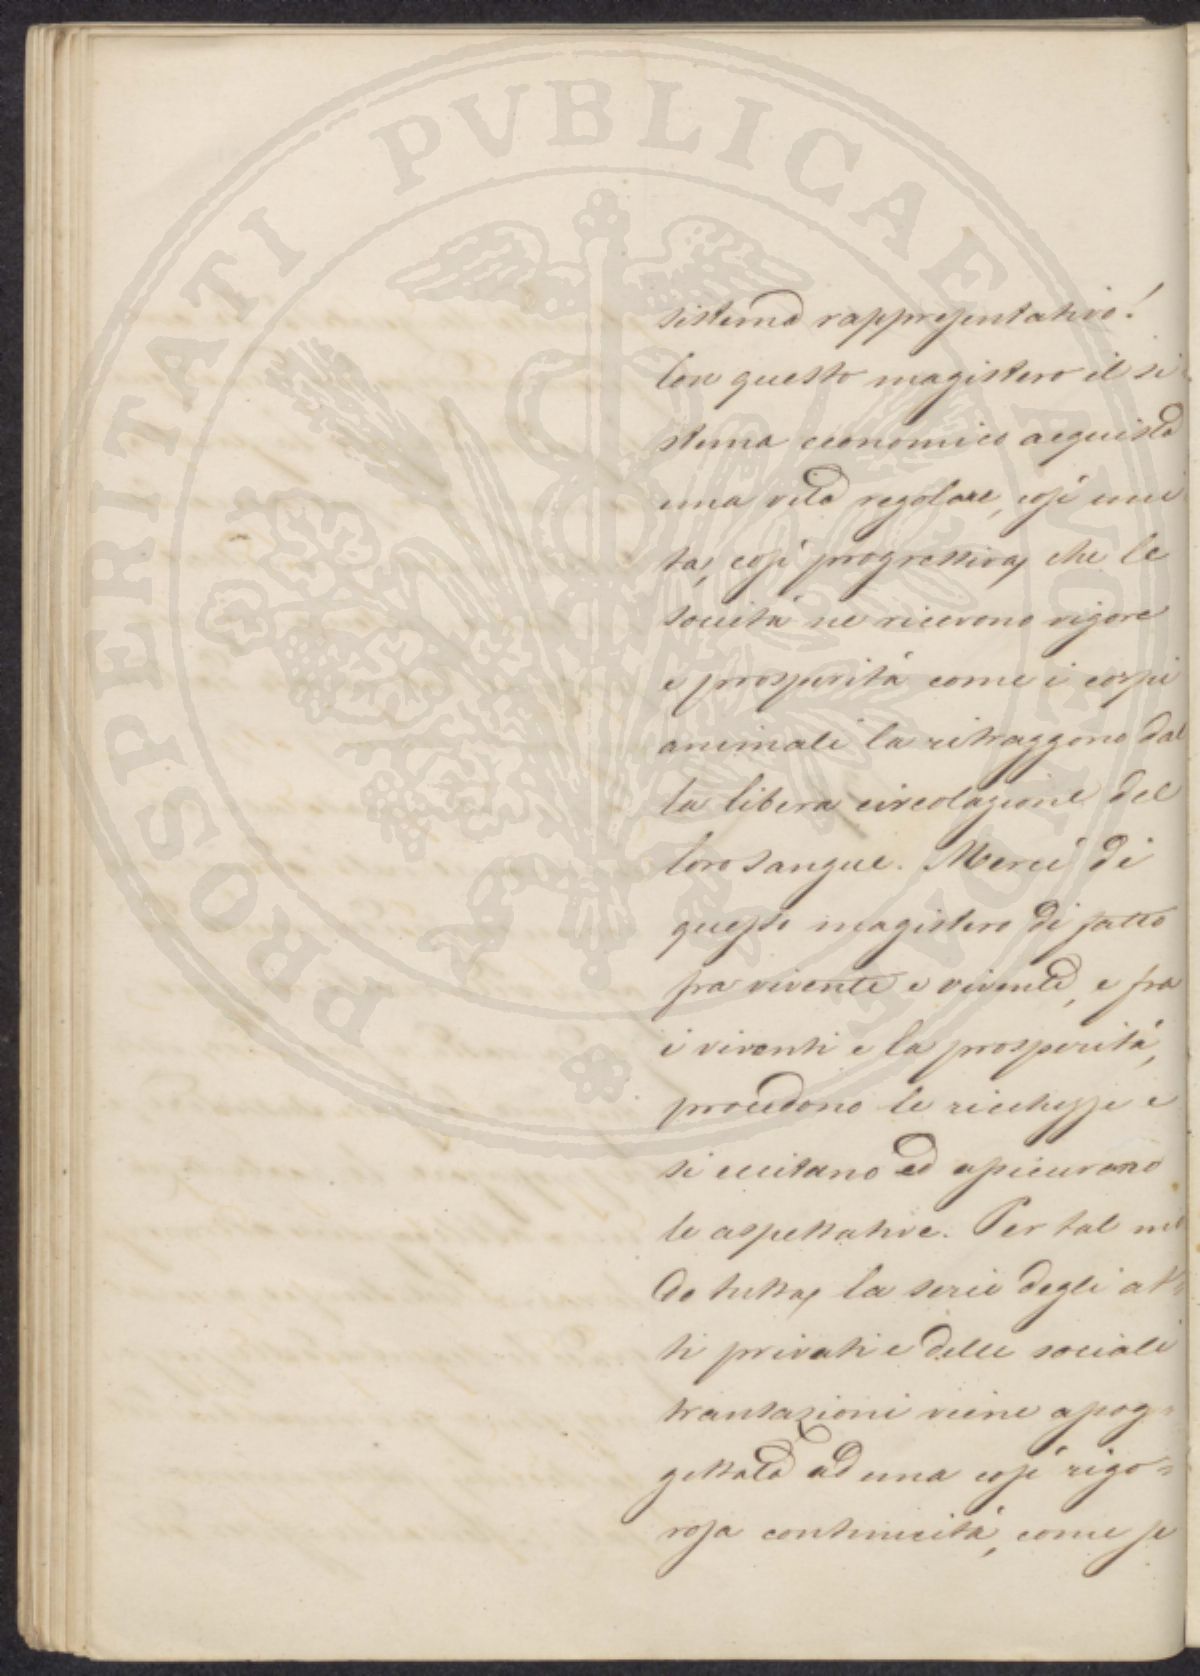 PROSPERITATI PVBLICAE AVGENDAE
sistema rappresentativo!
Con questo magistero il si
stema economico acquista
una vita regolare, così uni
ta, così progressiva, che le
società ne ricevono vigore
e prosperità come i corpi
animali la ritraggono dal
la libera circolazione del
loro sangue. Mercé di
questo magistero di fatto
fra vivente e vivente, e fra
i viventi e la prosperità,
procedono le ricchezze e
si eccitano ed assicurano
le aspettative. Per tal mo
do tutta la serie degli at=
ti privati e delle sociali
trantazioni viene assog=
gettata ad una così rigo=
rosa continuità, come se